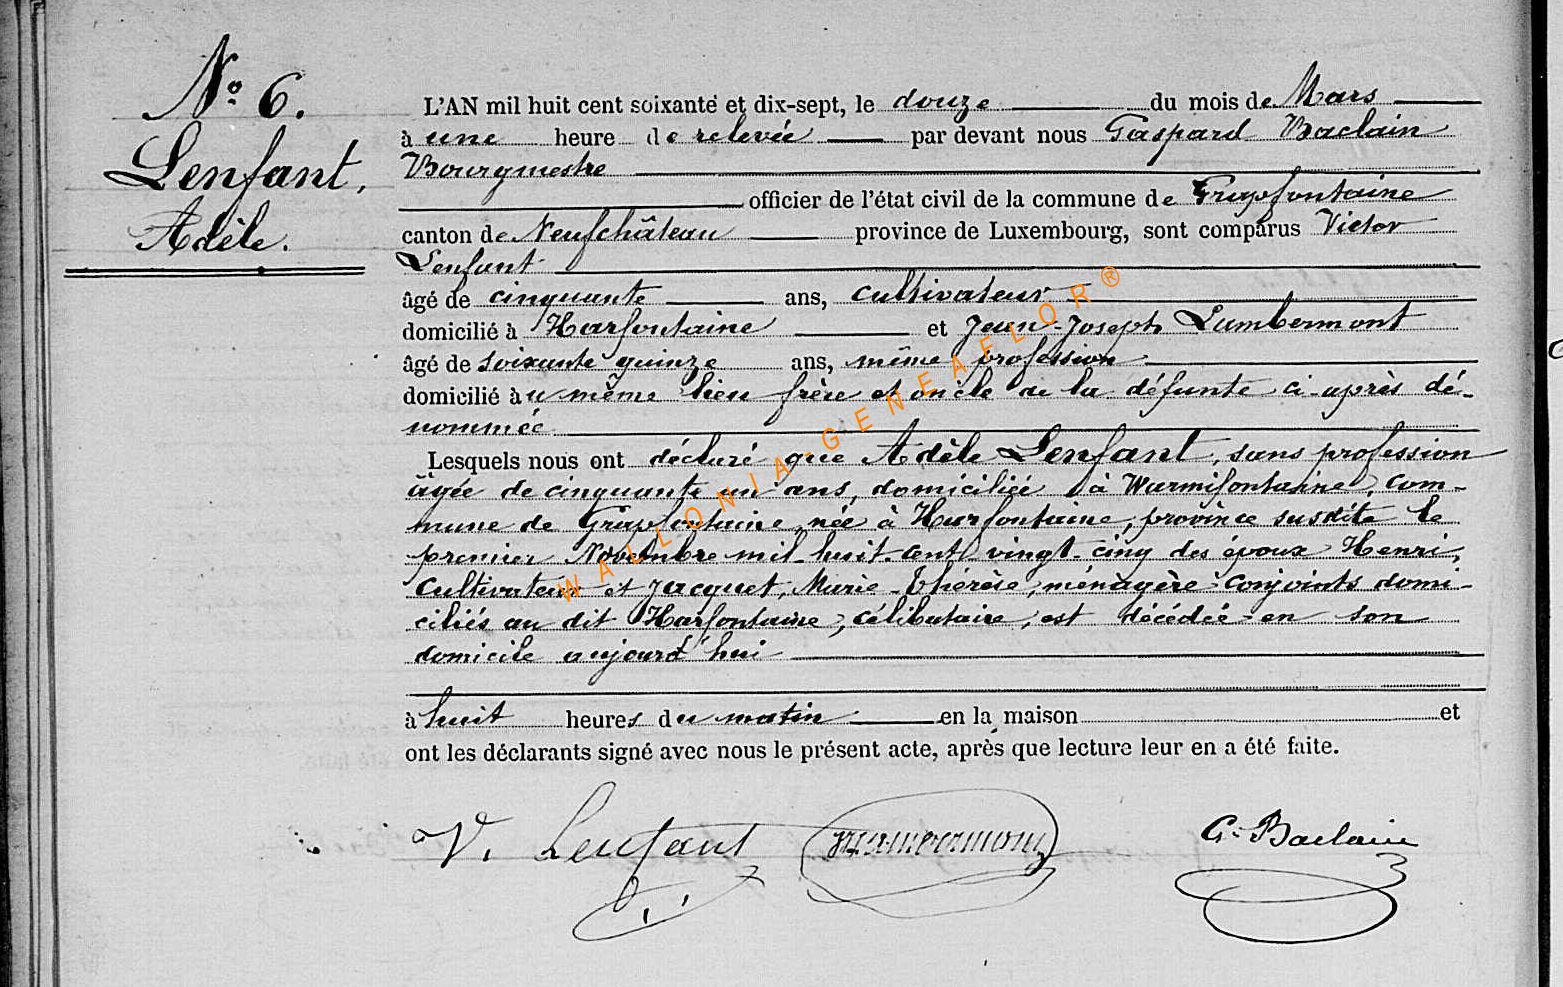 N° 6.
Lenfant,
Adèle.
L'AN mil huit cent soixante et dix-sept, le douze du mois de Mars
à une heure de relevée par devant nous Gaspard Baclain
Bourgmestre
officier de l'état civil de la commune de Grapfontaine
canton de Neufchâteau province de Luxembourg, sont comparus Victor
Lenfant
âgé de cinquante ans, cultivateur
domicilié à Harfontaine et Jean-Joseph Lambermont
âgé de soixante quinze ans, même profession
domicilié au même lieu frère et oncle de la défunte ci-après dé-
nommée
Lesquels nous ont déclaré que Adèle Lenfant, sans profession
âgée de cinquante un ans, domiciliée à Warmifontaine, com-
mune de Grapfontaine, née à Harfontaine, province susdite le
premier Novembre mil huit cent vingt-cinq des époux Henri,
cultivateur et Jacquet, Marie-Thérèse, ménagère conjoints domi-
ciliés au dit Harfontaine, célibataire, est décédée en son
domicile aujourd'hui
à huit heures du matin en la maison et
ont les déclarants signé avec nous le présent acte, après que lecture leur en a été faite.
V. Lenfant G. Baclain
WALLONIA-GENEAFLOR®